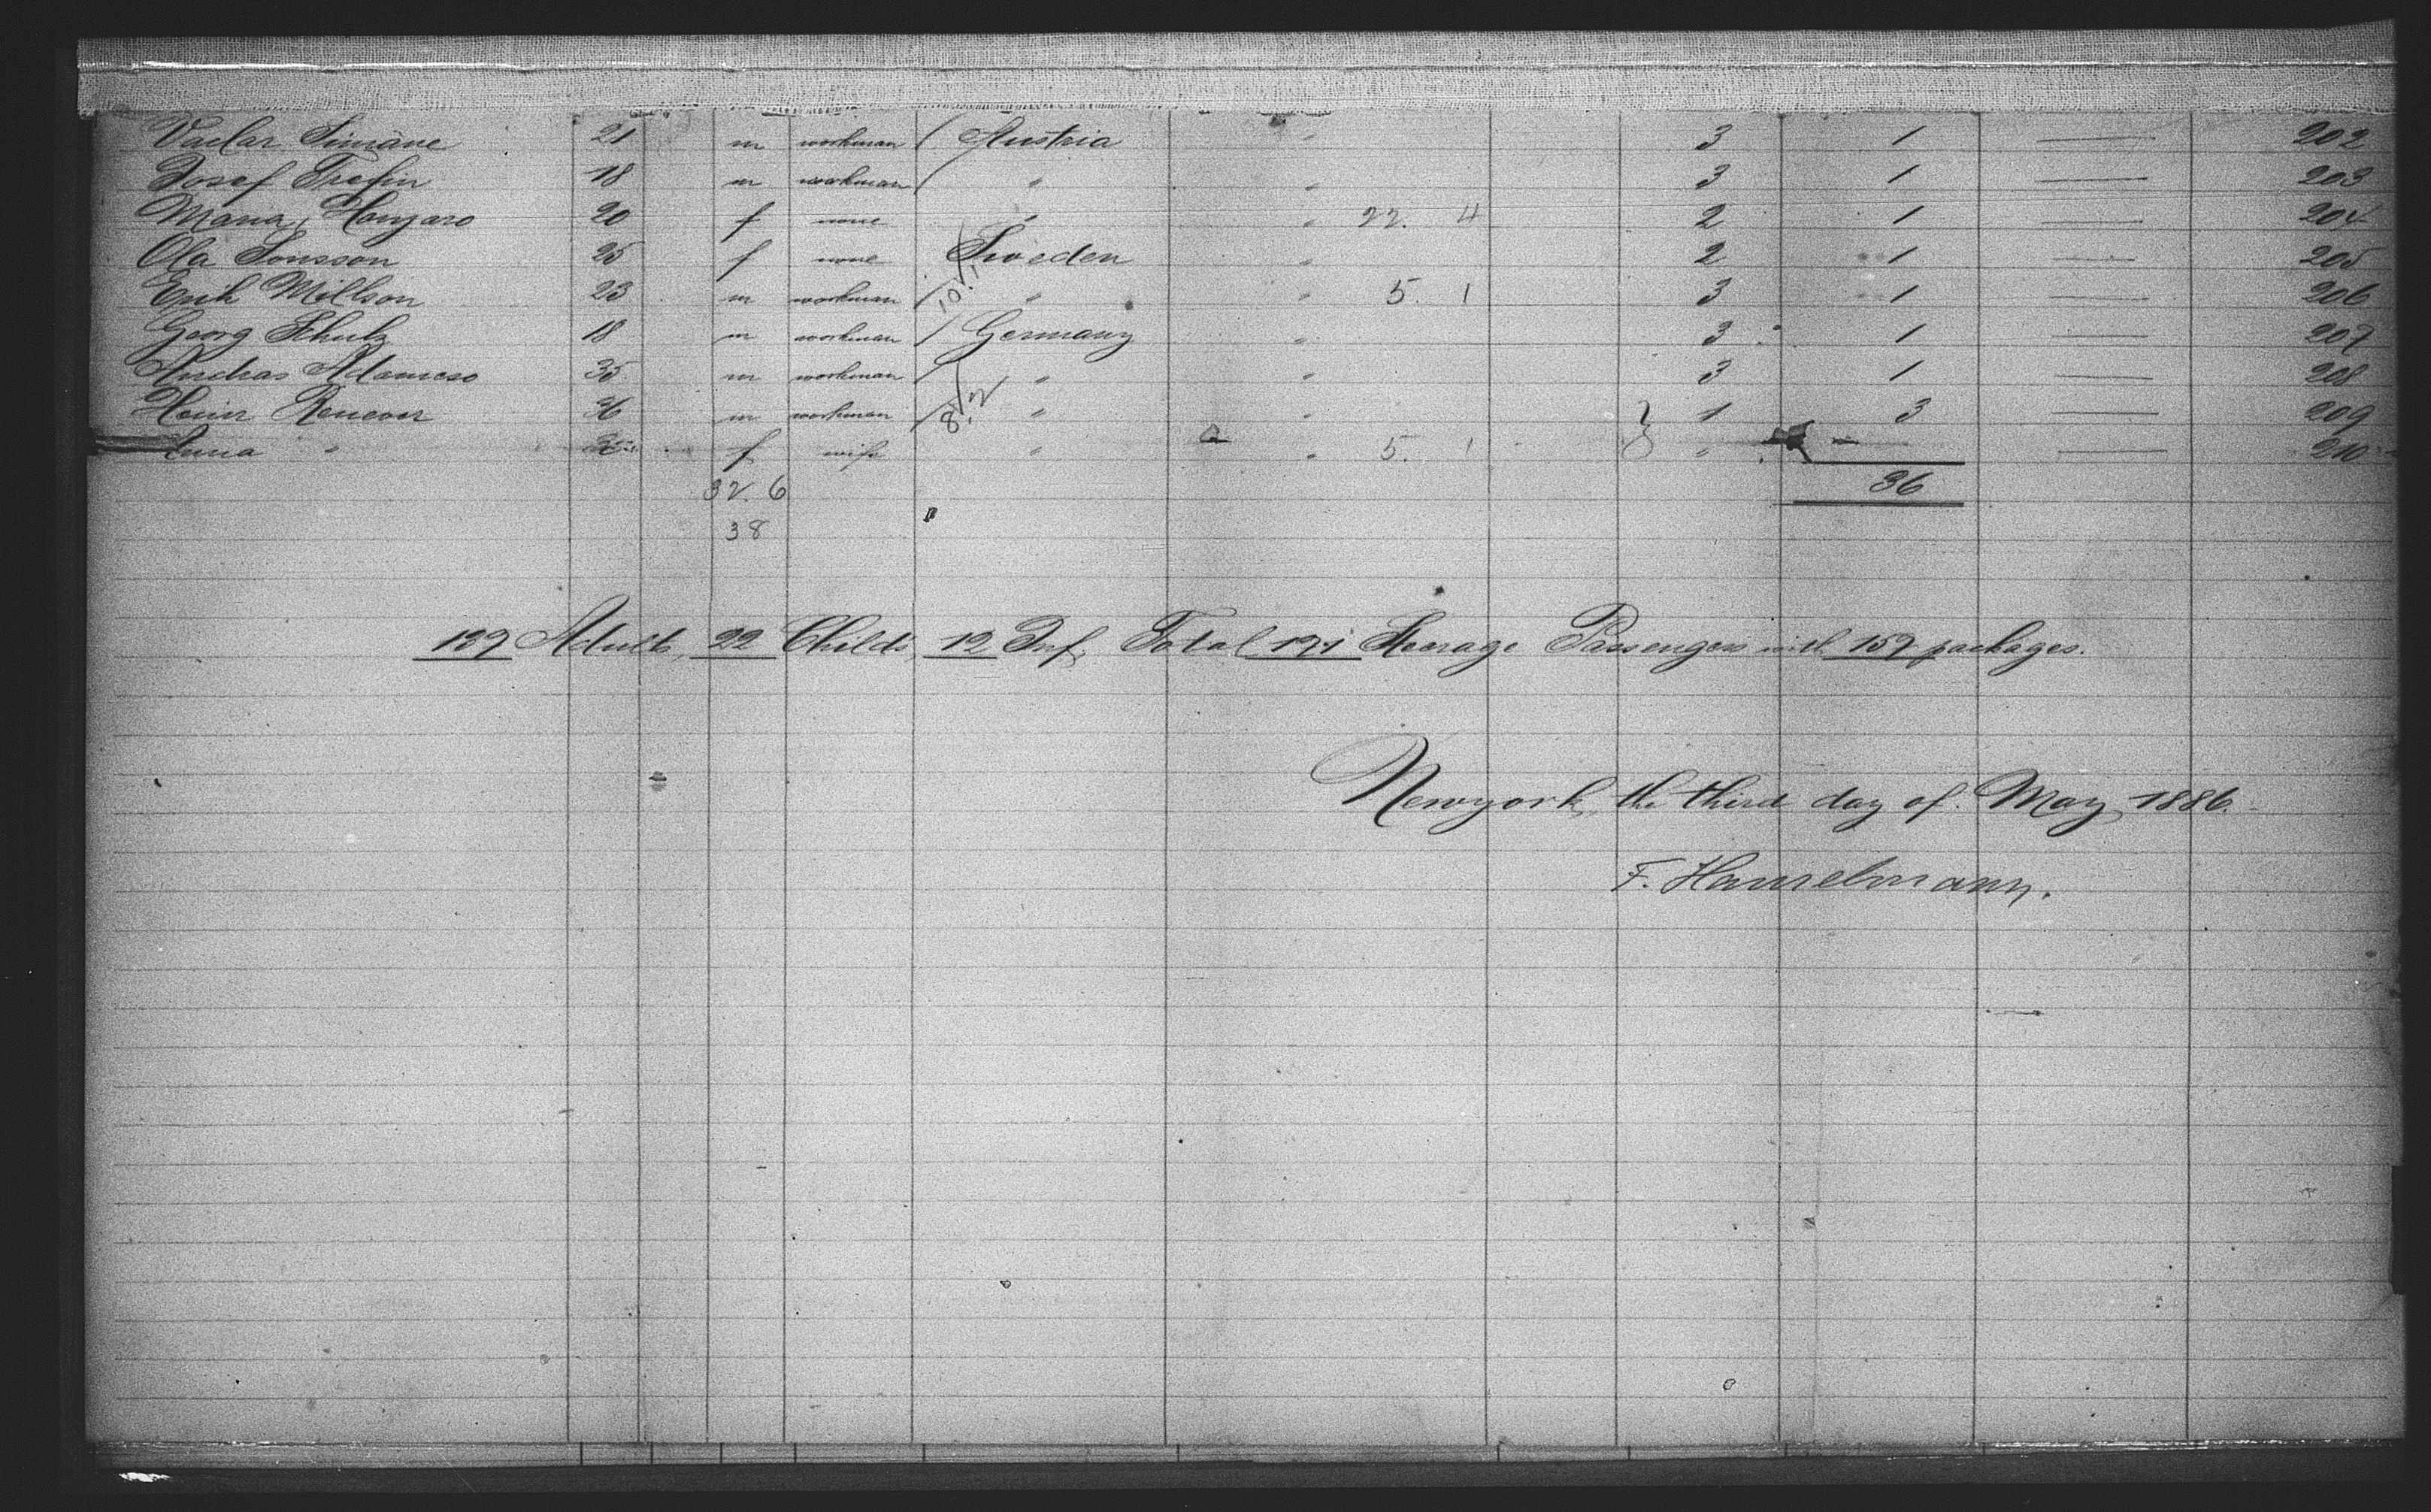 Vaclav Simane 21 m workman / Austria " 3 1 — 202
Josef Trefin 18 m workman / " " 3 1 — 203
Maria Hanzaro 20 f none " " 22. 4 2 1 — 204
Ola Jonsson 25 f none Sweden " 2 1 — 205
Erik Millson 23 m workman / 10.1 " " 5. 1 3 1 — 206
Georg Schulz 18 m workman / Germany " 3 1 — 207
Andras Adamcso 35 m workman / " " 3 1 — 208
Heinr Renever 36 m workman / 8.2 " " 1 3 — 209
Anna " f wife " " 5. 1 " — — 210
32. 6 36
38
Adults, 22 Childs, 12 Inf. Total Steerage Passengers with 157 packages.
Newyork, the third day of May 1886.
F. Hanselmann.